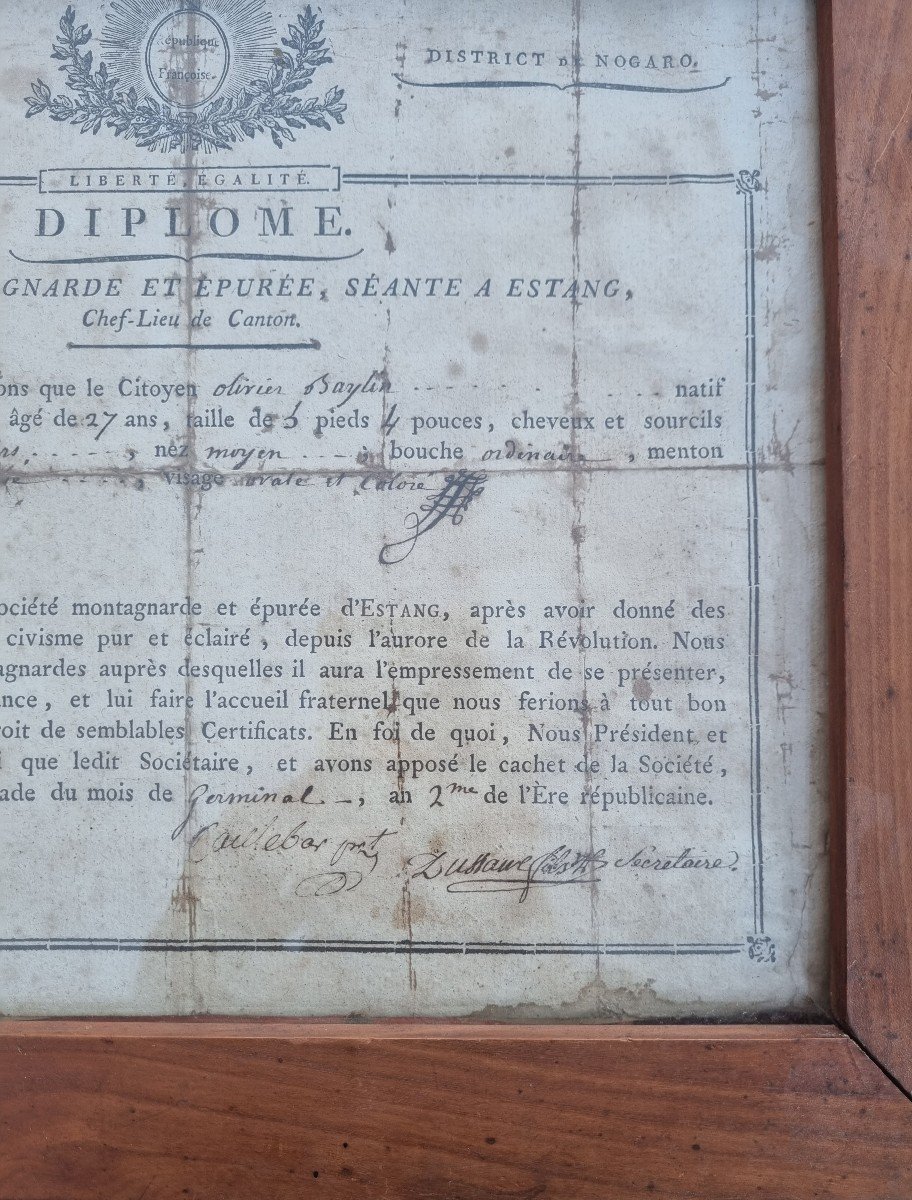 épublique
Françoise.
DISTRICT DE NOGARO.
LIBERTÉ, ÉGALITÉ.
DIPLOME.
GNARDE ET ÉPURÉE, SÉANTE A ESTANG,
Chef-Lieu de Canton.
ons que le Citoyen olivier Baylin natif
âgé de 27 ans, taille de 5 pieds 4 pouces, cheveux et sourcils
rs, nez moyen ; bouche ordinaire, menton
, visage ovale et Coloré
ociété montagnarde et épurée d'ESTANG, après avoir donné des
civisme pur et éclairé, depuis l'aurore de la Révolution. Nous
agnardes auprès desquelles il aura l'empressement de se présenter,
ance, et lui faire l'accueil fraternel que nous ferions à tout bon
roit de semblables Certificats. En foi de quoi, Nous Président et
que ledit Sociétaire, et avons apposé le cachet de la Société,
ade du mois de Germinal -, an 2me de l'Ère républicaine.
Secretaire.